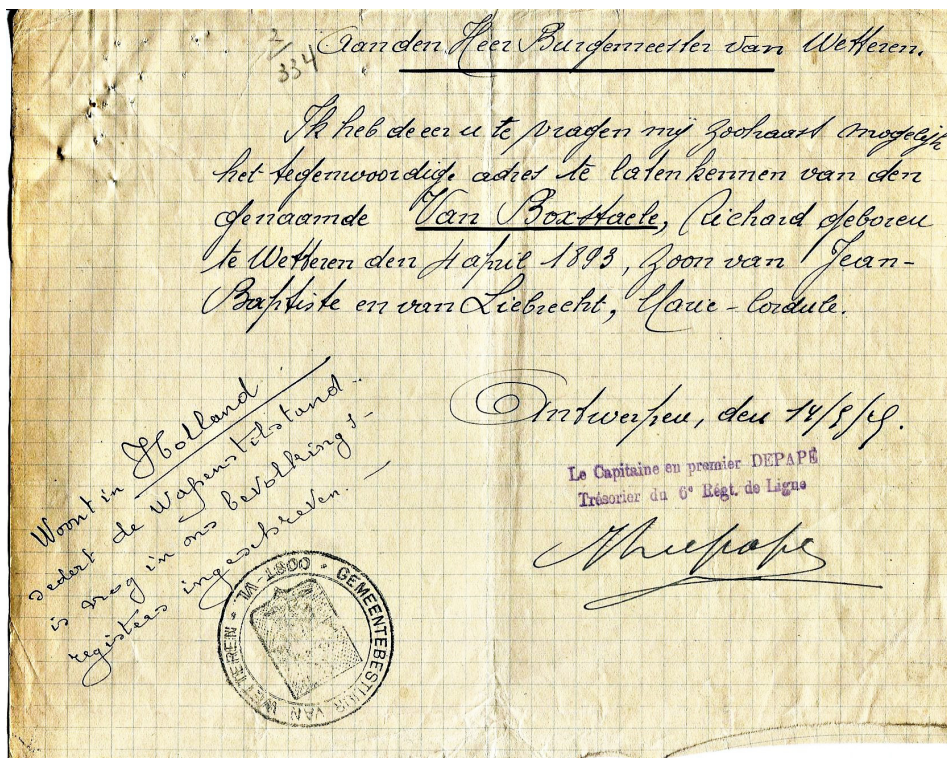 2/334
Aan den Heer Burgemeester van Wetteren.
Ik heb de eer u te vragen mij zoohaast mogelijk
het tegenwoordig adres te laten kennen van den
genaamde Van Boxstaele, Richard geboren
te Wetteren den 4 april 1893, zoon van Jean-
Baptiste en van Liebrecht, Marie-Cordule.
Antwerpen, den 14/5/
Le Capitaine en premier DEPAPE
Trésorier du 6e Régt. de Ligne
Depape
Woont in Holland
sedert de Wapenstilstand..
is nog in ons bevolkings-
registers ingeschreven. —
GEMEENTEBESTUUR VAN WETTEREN - OOST-VL.